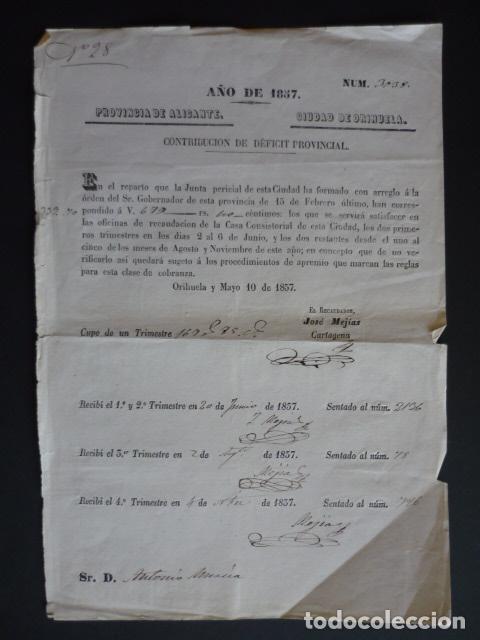 Nº 28
NUM.
AÑO DE 1857.
PROVINCIA DE ALICANTE. CIUDAD DE ORIHUELA.
CONTRIBUCION DE DÉFICIT PROVINCIAL.
En el reparto que la Junta pericial de esta Ciudad ha formado con arreglo á la
órden del Sr. Gobernador de esta provincia de 15 de Febrero último, han corres-
pondido á V. 679 rs. 60 céntimos: los que se servirá satisfacer en
las oficinas de recaudacion de la Casa Consistorial de esta Ciudad, los dos pri-
meros trimestres en los dias 2 al 6 de Junio, y los dos restantes desde el uno al
cinco de los meses de Agosto y Noviembre de este año; en concepto que de no ve-
rificarlo asi quedará sugeto á los procedimientos de apremio que marcan las reglas
para esta clase de cobranza.
Orihuela y Mayo 10 de 1857.
EL RECAUDADOR,
José Mejías
Cartagena
Cupo de un Trimestre
Recibí el 1.º y 2.º Trimestre en 20 de Junio de 1857. Sentado al núm. 2136
Mejías
Recibí el 3.er Trimestre en 2 de Agto de 1857. Sentado al núm. 78
Mejías
Recibí el 4.º Trimestre en 4 de de 1857. Sentado al núm.
Mejías
Sr. D. Antonio
todocoleccion.net